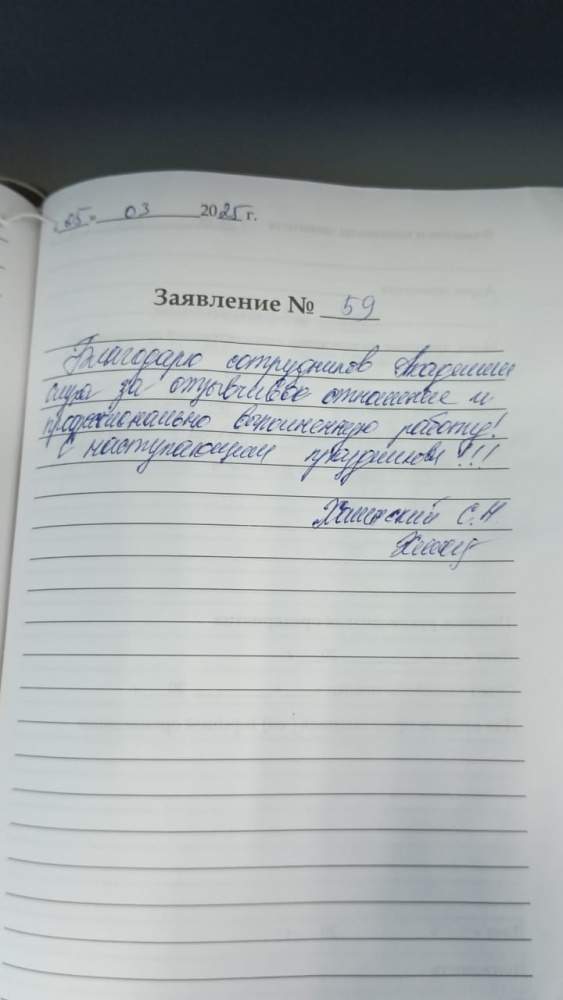 «05» 03 2025 г.
Заявление № 59
Благодарю сотрудников Академии
мира за отзывчивое отношение и
профессионально выполненную работу!
С наступающим праздником!!!
С.Н